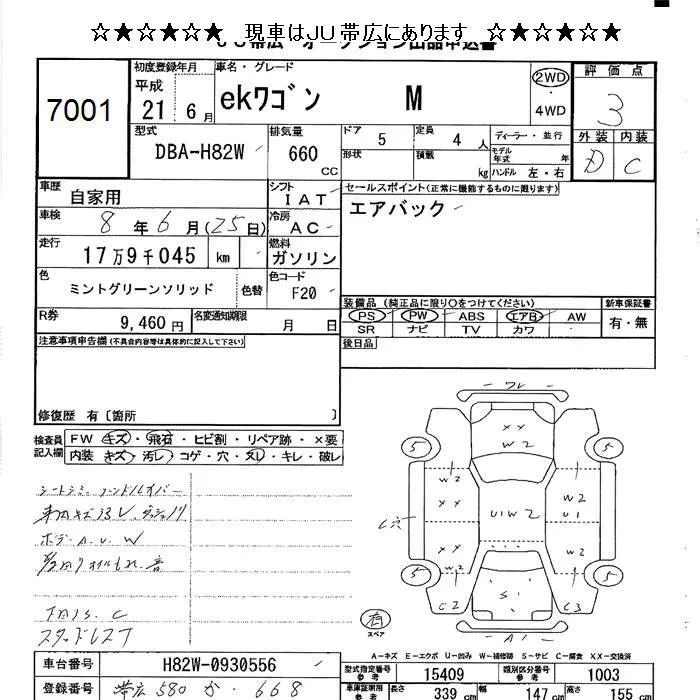 ☆★☆★☆★☆ 現車はJU帯広にあります ☆★☆★☆★☆
JU帯広 オークション出品申込書
7001
初度登録年月
平成
21年 6月
車名・グレード
ekワゴン M
2WD
・
4WD
評価点
3
外装 内装
D C
型式
DBA-H82W
排気量
660
CC
ドア
5
定員
4人
形状
積載
kg
ディーラー・並行
モデル年式 年
ハンドル 左・右
車歴
自家用
シフト
IAT
セールスポイント(正常に機能するものに限ります)
エアバック
車検
8年6月(25日)
冷房
AC
走行
17万9千045 km
燃料
ガソリン
色
ミントグリーンソリッド
色替
色コード
F20
装備品(純正品に限り〇をつけてください)
PS・PW・ABS・エアB・AW
SR・ナビ・TV・カワ・
新車保証書
有・無
R券
9,460円
名変通知期限
月 日
後日品
注意事項申告欄(不具合内容等は具体的に記入して下さい)
修復歴 有〔箇所 〕
検査員記入欄
FW キズ・飛石・ヒビ割・リペア跡・×要
内装 キズ・汚レ・コゲ・穴・スレ・キレ・破レ
シートシミ ハンドルカバー
ボデーA.U.W
下回リS.C
スタッドレス
ワレ
XX
W2
5
5
W2
XX
W2
U1
U1W2
XX
W2
XX
W2
5
5
S1
C2
C3
A1
有
スペア
A-キズ E-エクボ U-凹み W-補修跡 S-サビ C-腐食 XX-交換済
車台番号
H82W-0930556
型式指定番号
参考
15409
類別区分番号
参考
1003
登録番号
帯広 580 か ・668
車庫証明用
参考
長さ
339cm
幅
147cm
高さ
155cm